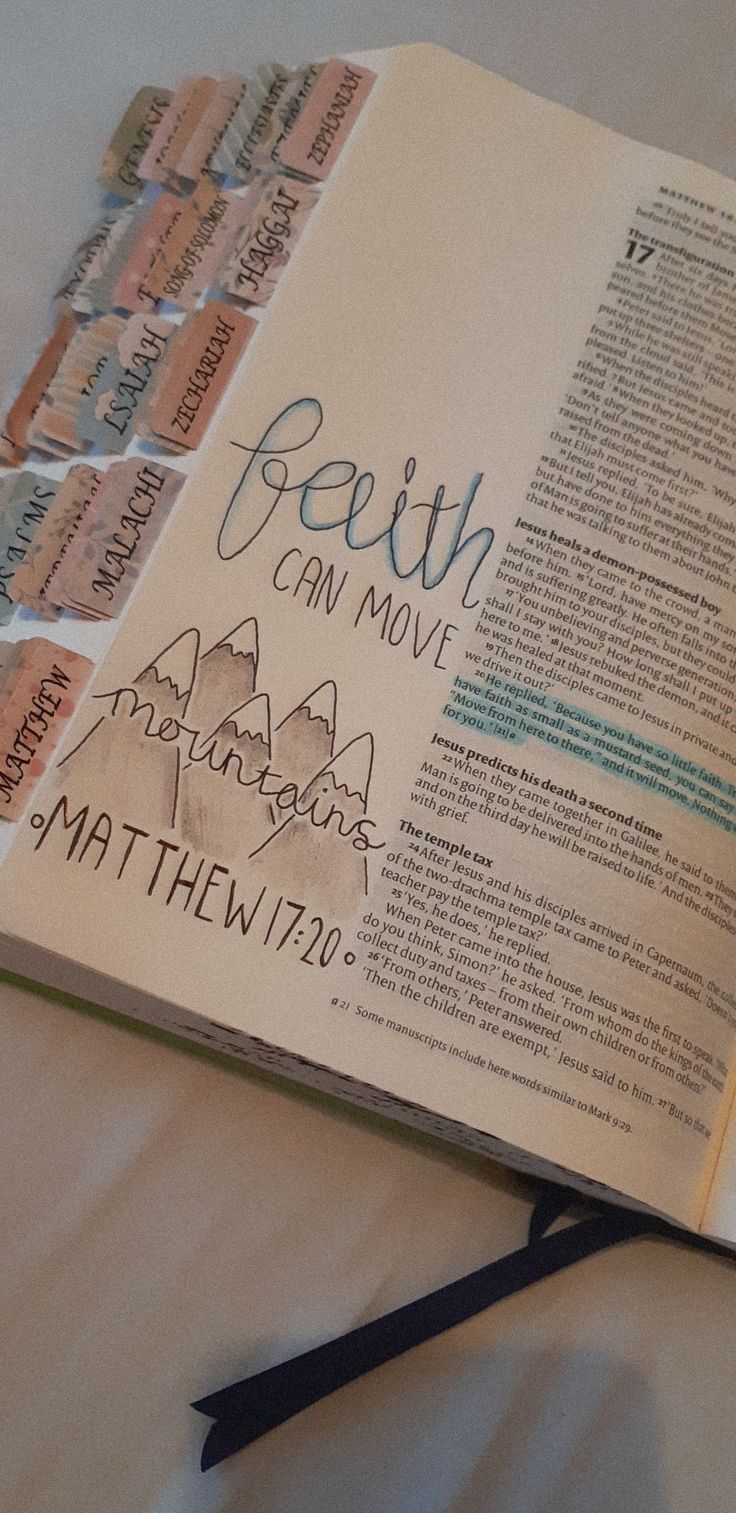 GENESIS
ZEPHANIAH
SONG OF SOLOMON
HAGGAI
ISAIAH
ZECHARIAH
PSALMS
MALACHI
MATTHEW
faith
CAN MOVE
mountains
MATTHEW 17:20
MATTHEW 16
Truly I tell you
before they see the
The transfiguration
17 After six days
brother of
selves. There he was
sun, and his clothes
peared before them
Peter said to Jesus,
put up three shelters
While he was still
from the cloud said, 'This is
pleased. Listen to him!'
When the disciples heard
rified. 7 But Jesus came and
afraid.' 8 When they looked up,
9 As they were coming down
'Don't tell anyone what you have
raised from the dead.'
10 The disciples asked him, 'Why
that Elijah must come first?'
11 Jesus replied, 'To be sure, Elijah
12 But I tell you, Elijah has already
but have done to him everything they
of Man is going to suffer at their hands.'
that he was talking to them about John
Jesus heals a demon-possessed boy
14 When they came to the crowd, a man
before him. 15 'Lord, have mercy on my son
and is suffering greatly. He often falls into
brought him to your disciples, but they could
17 'You unbelieving and perverse generation,
shall I stay with you? How long shall I put up
here to me.' 18 Jesus rebuked the demon, and it
he was healed at that moment.
19 Then the disciples came to Jesus in private and
we drive it out?'
20 He replied, 'Because you have so little faith.
have faith as small as a mustard seed, you can say
"Move from here to there," and it will move. Nothing
for you.' [21] a
Jesus predicts his death a second time
22 When they came together in Galilee, he said to them
Man is going to be delivered into the hands of men. 23 They
and on the third day he will be raised to life.' And the disciples
with grief.
The temple tax
24 After Jesus and his disciples arrived in Capernaum, the
of the two-drachma temple tax came to Peter and asked, 'Doesn't
teacher pay the temple tax?'
25 'Yes, he does,' he replied.
When Peter came into the house, Jesus was the first to speak.
do you think, Simon?' he asked. 'From whom do the kings of the
collect duty and taxes – from their own children or from others?'
26 'From others,' Peter answered.
'Then the children are exempt,' Jesus said to him. 27 'But so that
a 21 Some manuscripts include here words similar to Mark 9:29.